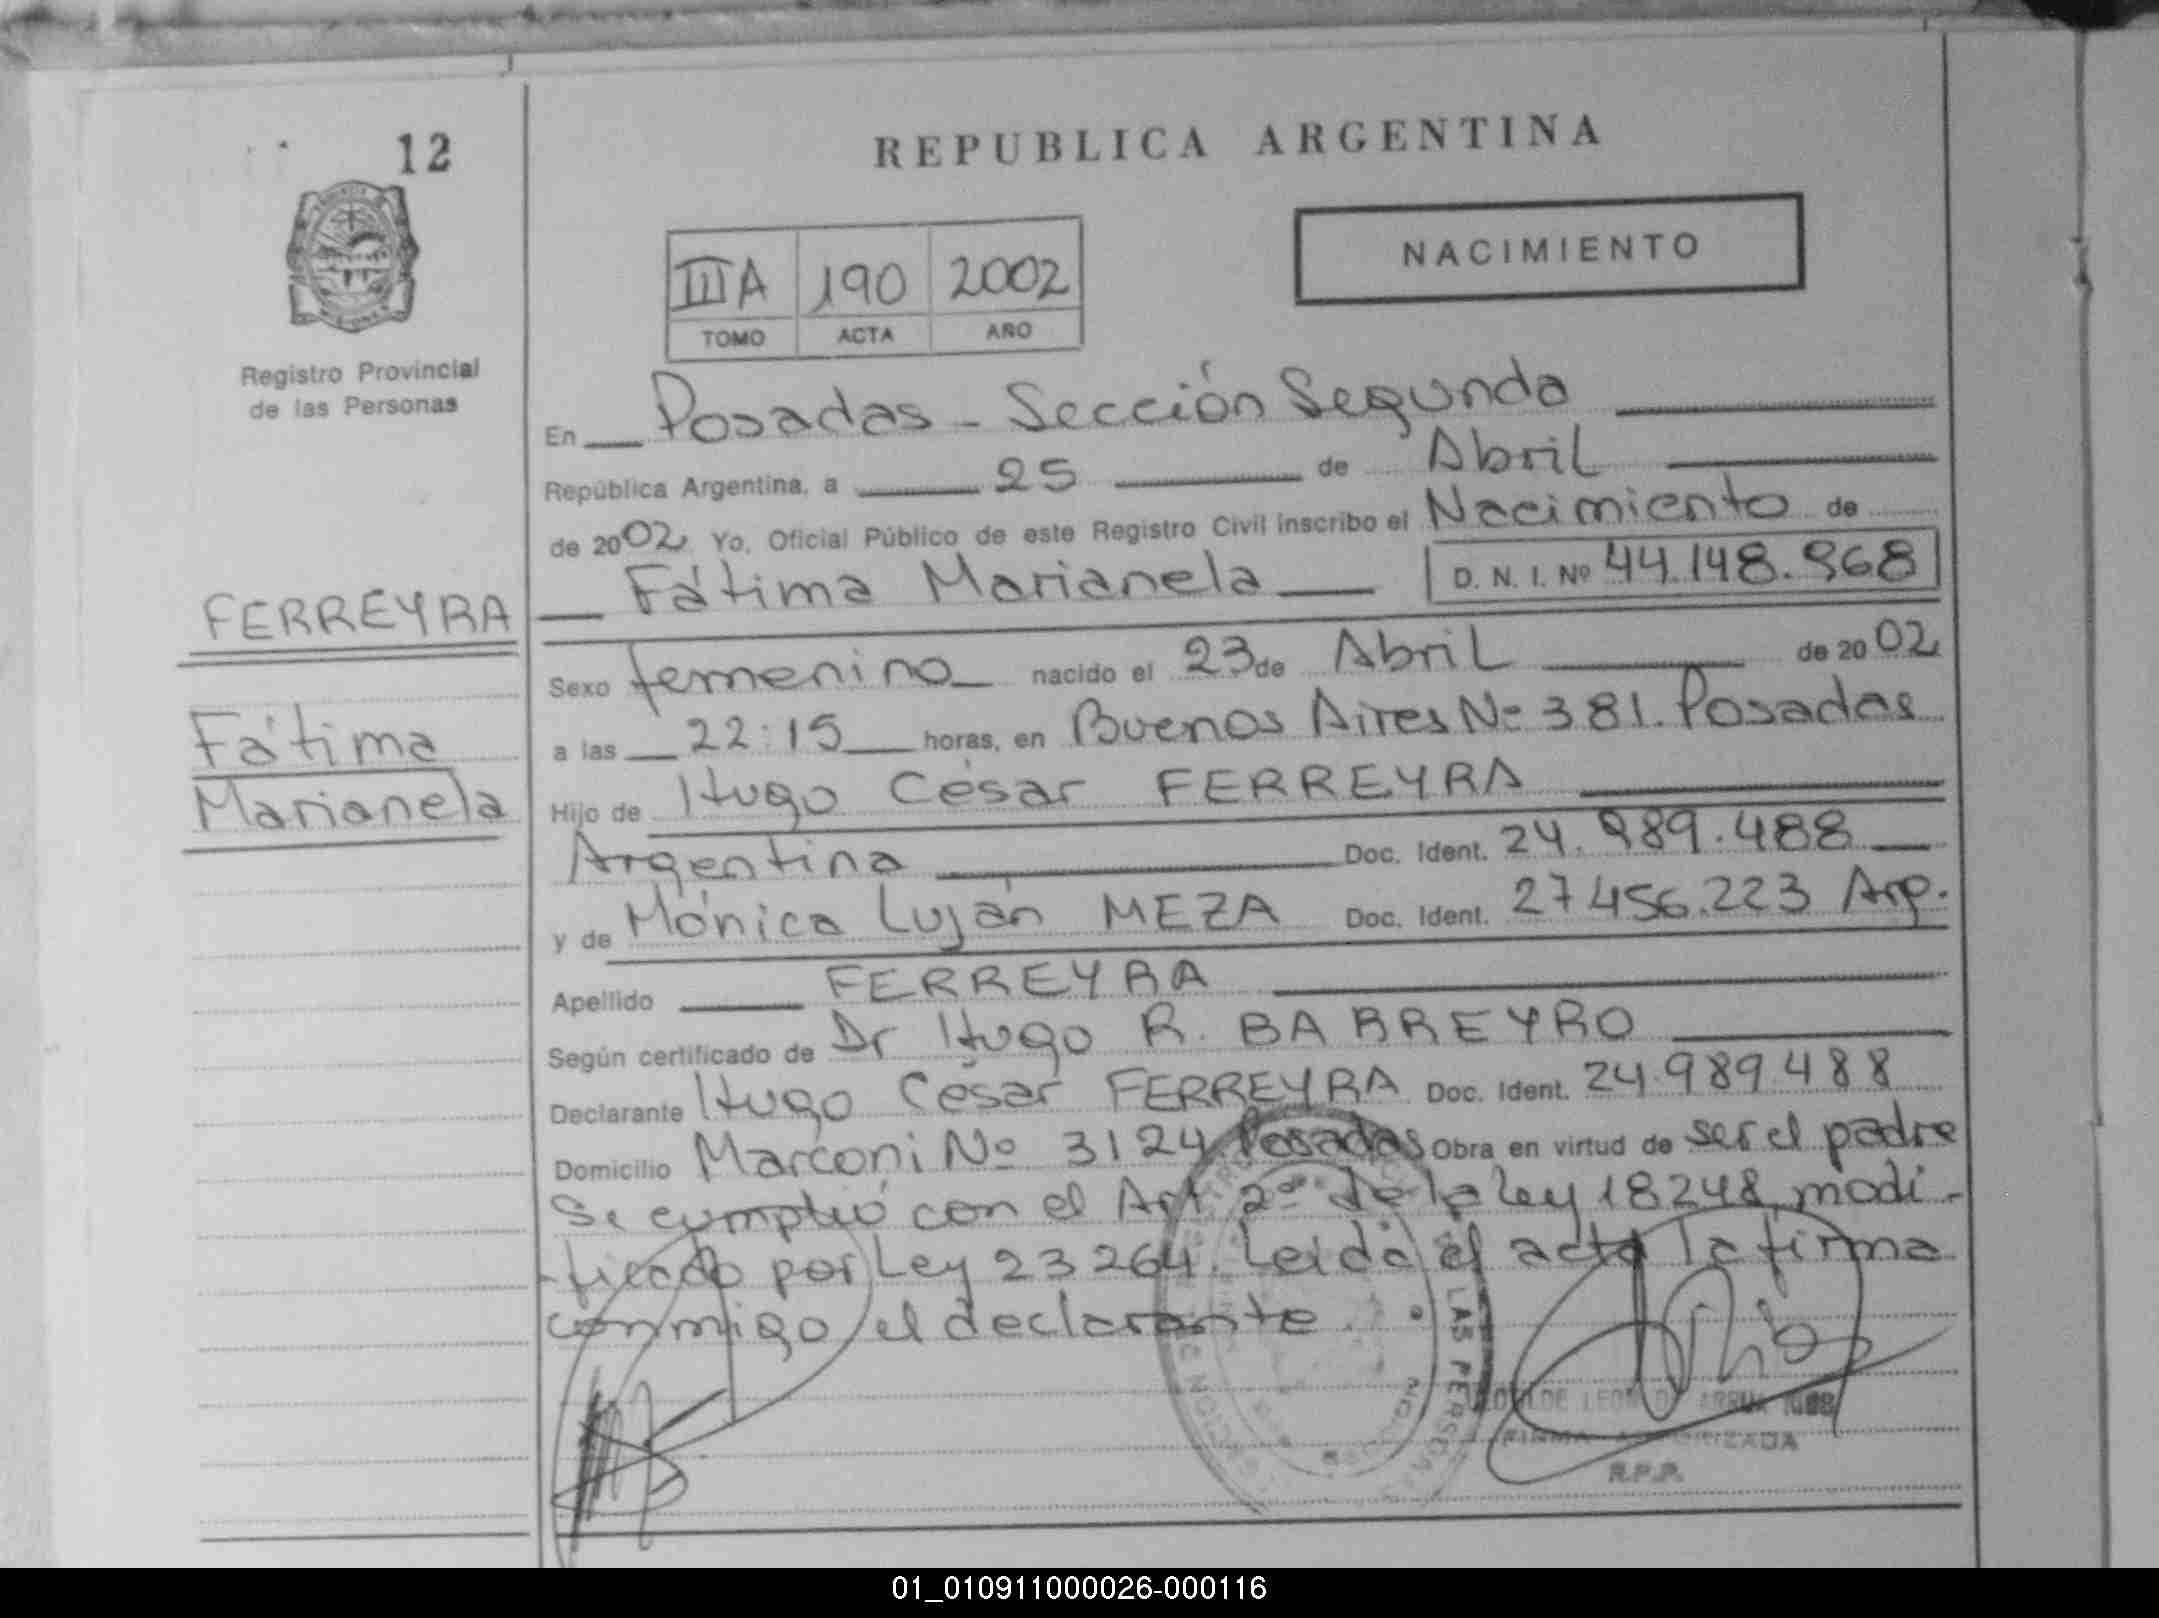 12
REPUBLICA ARGENTINA
NACIMIENTO
III A 190 2002
TOMO ACTA AÑO
Registro Provincial
de las Personas
En Posadas - Sección Segunda
República Argentina, a 25 de Abril
de 2002 Yo, Oficial Público de este Registro Civil inscribo el Nacimiento de
FERREYRA
Fátima Marianela D. N. I. Nº 44.148.968
Sexo femenino nacido el 23 de Abril de 2002
Fátima
a las 22:15 horas, en Buenos Aires Nº 381. Posadas
Marianela
Hijo de Hugo César FERREYRA
Argentina Doc. Ident. 24.989.488
y de Mónica Luján MEZA Doc. Ident. 27456.223 Arg.
Apellido FERREYRA
Según certificado de Dr Hugo R. BARREYRO
Declarante Hugo César FERREYRA Doc. Ident. 24.989.488
Domicilio Marconi Nº 3124 Posadas Obra en virtud de ser el padre
Se cumplió con el Art 2º de la Ley 18248, modi-
-ficado por Ley 23264. Leida el acta la firma
conmigo el declarante.
LAS PERSONAS
FIRMA AUTORIZADA
R.P.P.
01_010911000026-000116